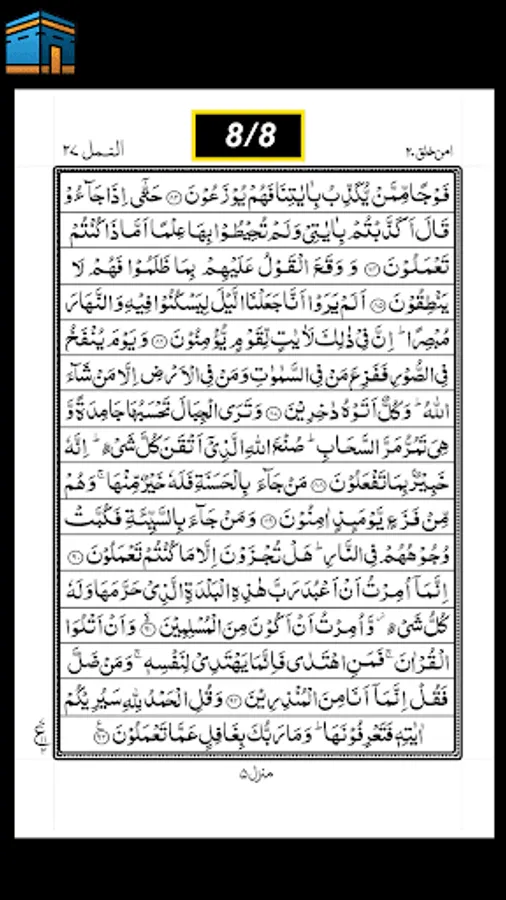 8/8
النمل ٢٧
امن خلق ٢٠
فَوْجًا مِّمَّنْ يُّكَذِّبُ بِاٰيٰتِنَا فَهُمْ يُوْزَعُوْنَ ﴿٨٣﴾ حَتّٰۤى اِذَا جَآءُوْ
قَالَ اَكَذَّبْتُمْ بِاٰيٰتِيْ وَلَمْ تُحِيْطُوْا بِهَا عِلْمًا اَمَّا ذَا كُنْتُمْ
تَعْمَلُوْنَ ﴿٨٤﴾ وَ وَقَعَ الْقَوْلُ عَلَيْهِمْ بِمَا ظَلَمُوْا فَهُمْ لَا
يَنْطِقُوْنَ ﴿٨٥﴾ اَلَمْ يَرَوْا اَنَّا جَعَلْنَا الَّيْلَ لِيَسْكُنُوْا فِيْهِ وَالنَّهَارَ
مُبْصِرًا ؕ اِنَّ فِيْ ذٰلِكَ لَاٰيٰتٍ لِّقَوْمٍ يُّؤْمِنُوْنَ ﴿٨٦﴾ وَ يَوْمَ يُنْفَخُ
فِي الصُّوْرِ فَفَزِعَ مَنْ فِي السَّمٰوٰتِ وَمَنْ فِي الْاَرْضِ اِلَّا مَنْ شَآءَ
اللّٰهُ ؕ وَكُلٌّ اَتَوْهُ دٰخِرِيْنَ ﴿٨٧﴾ وَتَرَى الْجِبَالَ تَحْسَبُهَا جَامِدَةً وَّ
هِيَ تَمُرُّ مَرَّ السَّحَابِ ؕ صُنْعَ اللّٰهِ الَّذِيْۤ اَتْقَنَ كُلَّ شَيْءٍ ؕ اِنَّهٗ
خَبِيْرٌۢ بِمَا تَفْعَلُوْنَ ﴿٨٨﴾ مَنْ جَآءَ بِالْحَسَنَةِ فَلَهٗ خَيْرٌ مِّنْهَا ۚ وَهُمْ
مِّنْ فَزَعٍ يَّوْمَئِذٍ اٰمِنُوْنَ ﴿٨٩﴾ وَمَنْ جَآءَ بِالسَّيِّئَةِ فَكُبَّتْ
وُجُوْهُهُمْ فِي النَّارِ ؕ هَلْ تُجْزَوْنَ اِلَّا مَا كُنْتُمْ تَعْمَلُوْنَ ﴿٩٠﴾
اِنَّمَاۤ اُمِرْتُ اَنْ اَعْبُدَ رَبَّ هٰذِهِ الْبَلْدَةِ الَّذِيْ حَرَّمَهَا وَلَهٗ
كُلُّ شَيْءٍ ؗ وَّاُمِرْتُ اَنْ اَكُوْنَ مِنَ الْمُسْلِمِيْنَ ﴿٩١﴾ وَاَنْ اَتْلُوَا
الْقُرْاٰنَ ۚ فَمَنِ اهْتَدٰى فَاِنَّمَا يَهْتَدِيْ لِنَفْسِهٖ ۚ وَمَنْ ضَلَّ
فَقُلْ اِنَّمَاۤ اَنَا مِنَ الْمُنْذِرِيْنَ ﴿٩٢﴾ وَقُلِ الْحَمْدُ لِلّٰهِ سَيُرِيْكُمْ
اٰيٰتِهٖ فَتَعْرِفُوْنَهَا ؕ وَمَا رَبُّكَ بِغَافِلٍ عَمَّا تَعْمَلُوْنَ ﴿٩٣﴾
منزل ٥